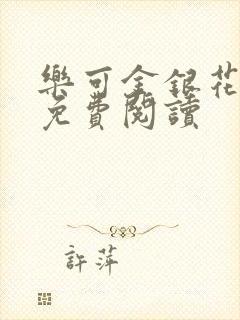 樂可金銀花
免費閱讀
許萍